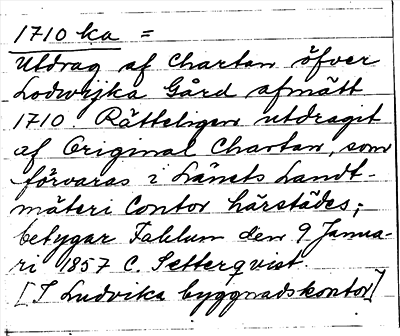 1710 ka =
Utdrag af Chartan öfver
Lodwijka Gård afmätt
1710 Rätteligen utdragit
af Original Chartan, som
förvaras i Länets Landt-
mäteri Contor härstädes;
betygar Fahlun den 9 Janua-
ri 1857 C. Setterqvist.
[I Ludvika byggnadskontor]